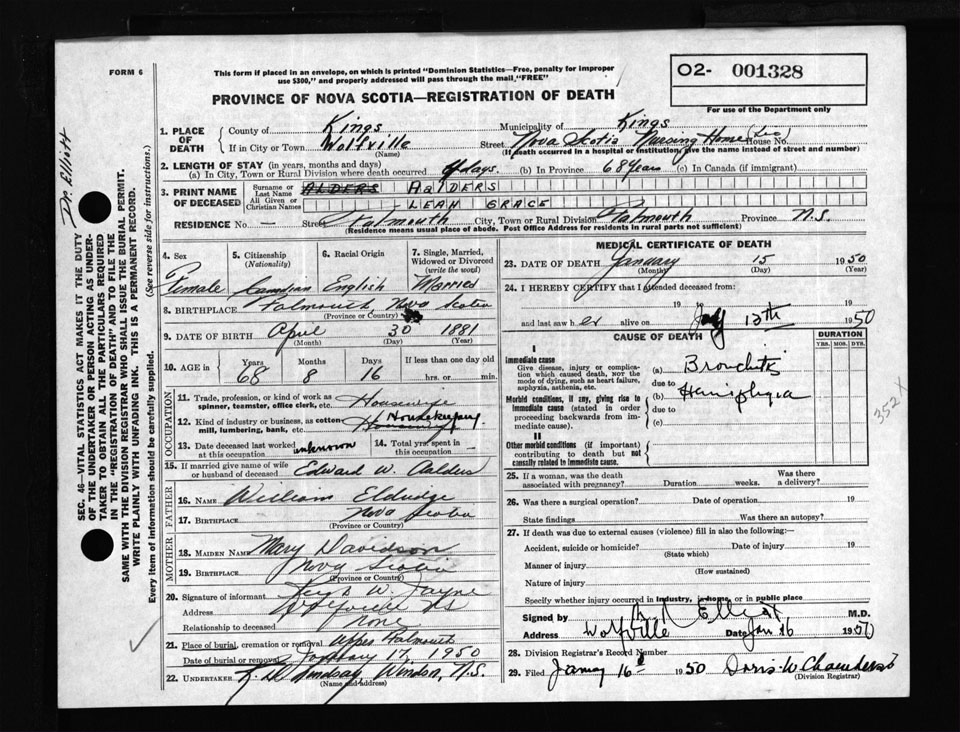 FORM 6
This form if placed in an envelope, on which is printed "Dominion Statistics—Free, penalty for improper
use $300," and properly addressed will pass through the mail, "FREE"
O2- 001328
For use of the Department only
PROVINCE OF NOVA SCOTIA—REGISTRATION OF DEATH
1. PLACE OF DEATH
County of Kings Municipality of Kings
If in City or Town Wolfville Street Nova Scotia Nursing Home House No.
(Name) (If death occurred in a hospital or institution, give the name instead of street and number)
2. LENGTH OF STAY (in years, months and days)
(a) In City, Town or Rural Division where death occurred days. (b) In Province 68 Years (c) In Canada (if immigrant)
3. PRINT NAME OF DECEASED
Surname or Last Name ALDERS AALDERS
All Given or Christian Names LEAH GRACE
RESIDENCE No. Street Falmouth City, Town or Rural Division Falmouth Province N.S.
(Residence means usual place of abode. Post Office Address for residents in rural parts not sufficient)
4. Sex Female
5. Citizenship (Nationality) Canadian
6. Racial Origin English
7. Single, Married, Widowed or Divorced (write the word) Married
8. BIRTHPLACE Falmouth, Nova Scotia
(Province or Country)
9. DATE OF BIRTH April 30 1881
(Month) (Day) (Year)
10. AGE in Years 68 Months 8 Days 16 If less than one day old hrs. or min.
OCCUPATION
11. Trade, profession, or kind of work as spinner, teamster, office clerk, etc. Housewife
12. Kind of industry or business, as cotton mill, lumbering, bank, etc. Housekeeping
13. Date deceased last worked at this occupation unknown
14. Total yrs. spent in this occupation
15. If married give name of wife or husband of deceased Edward W. Aalders
FATHER
16. NAME William Eldridge
17. BIRTHPLACE Nova Scotia
(Province or Country)
MOTHER
18. MAIDEN NAME Mary Davidson
19. BIRTHPLACE Nova Scotia
(Province or Country)
20. Signature of informant W. Jayne
Address Wolfville NS
Relationship to deceased None
21. Place of burial, cremation or removal Upper Falmouth
Date of burial or removal January 17, 1950
22. UNDERTAKER Lindsay, Windsor, N.S.
(Name and address)
MEDICAL CERTIFICATE OF DEATH
23. DATE OF DEATH January 15 1950
(Month) (Day) (Year)
24. I HEREBY CERTIFY that I attended deceased from:
19 to 19
and last saw her alive on 13th 1950
CAUSE OF DEATH
DURATION
YRS. MOS. DYS.
I
Immediate cause
Give disease, injury or complication which caused death, not the mode of dying, such as heart failure, asphyxia, asthenia, etc.
(a) Bronchitis
due to
Morbid conditions, if any, giving rise to immediate cause (stated in order proceeding backwards from immediate cause).
(b) Hemiplegia
due to
(c)
352
II
Other morbid conditions (if important) contributing to death but not causally related to immediate cause.
25. If a woman, was the death associated with pregnancy? Duration weeks. Was there a delivery?
26. Was there a surgical operation? Date of operation 19
State findings Was there an autopsy?
27. If death was due to external causes (violence) fill in also the following:—
Accident, suicide or homicide? Date of injury 19
(State which)
Manner of injury
(How sustained)
Nature of injury
Specify whether injury occurred in industry, in home, or in public place
Signed by Elliott M.D.
Address Wolfville Date Jan 16 1950
28. Division Registrar's Record Number
29. Filed January 16 1950 Doris W
(Division Registrar)
Dr. Elliott
SEC. 46—VITAL STATISTICS ACT MAKES IT THE DUTY
OF THE UNDERTAKER OR PERSON ACTING AS UNDER-
TAKER TO OBTAIN ALL THE PARTICULARS REQUIRED
IN THE "REGISTRATION OF DEATH" AND TO FILE THE
SAME WITH THE DIVISION REGISTRAR WHO SHALL ISSUE THE BURIAL PERMIT.
WRITE PLAINLY WITH UNFADING INK. THIS IS A PERMANENT RECORD.
Every item of information should be carefully supplied. (See reverse side for instructions.)